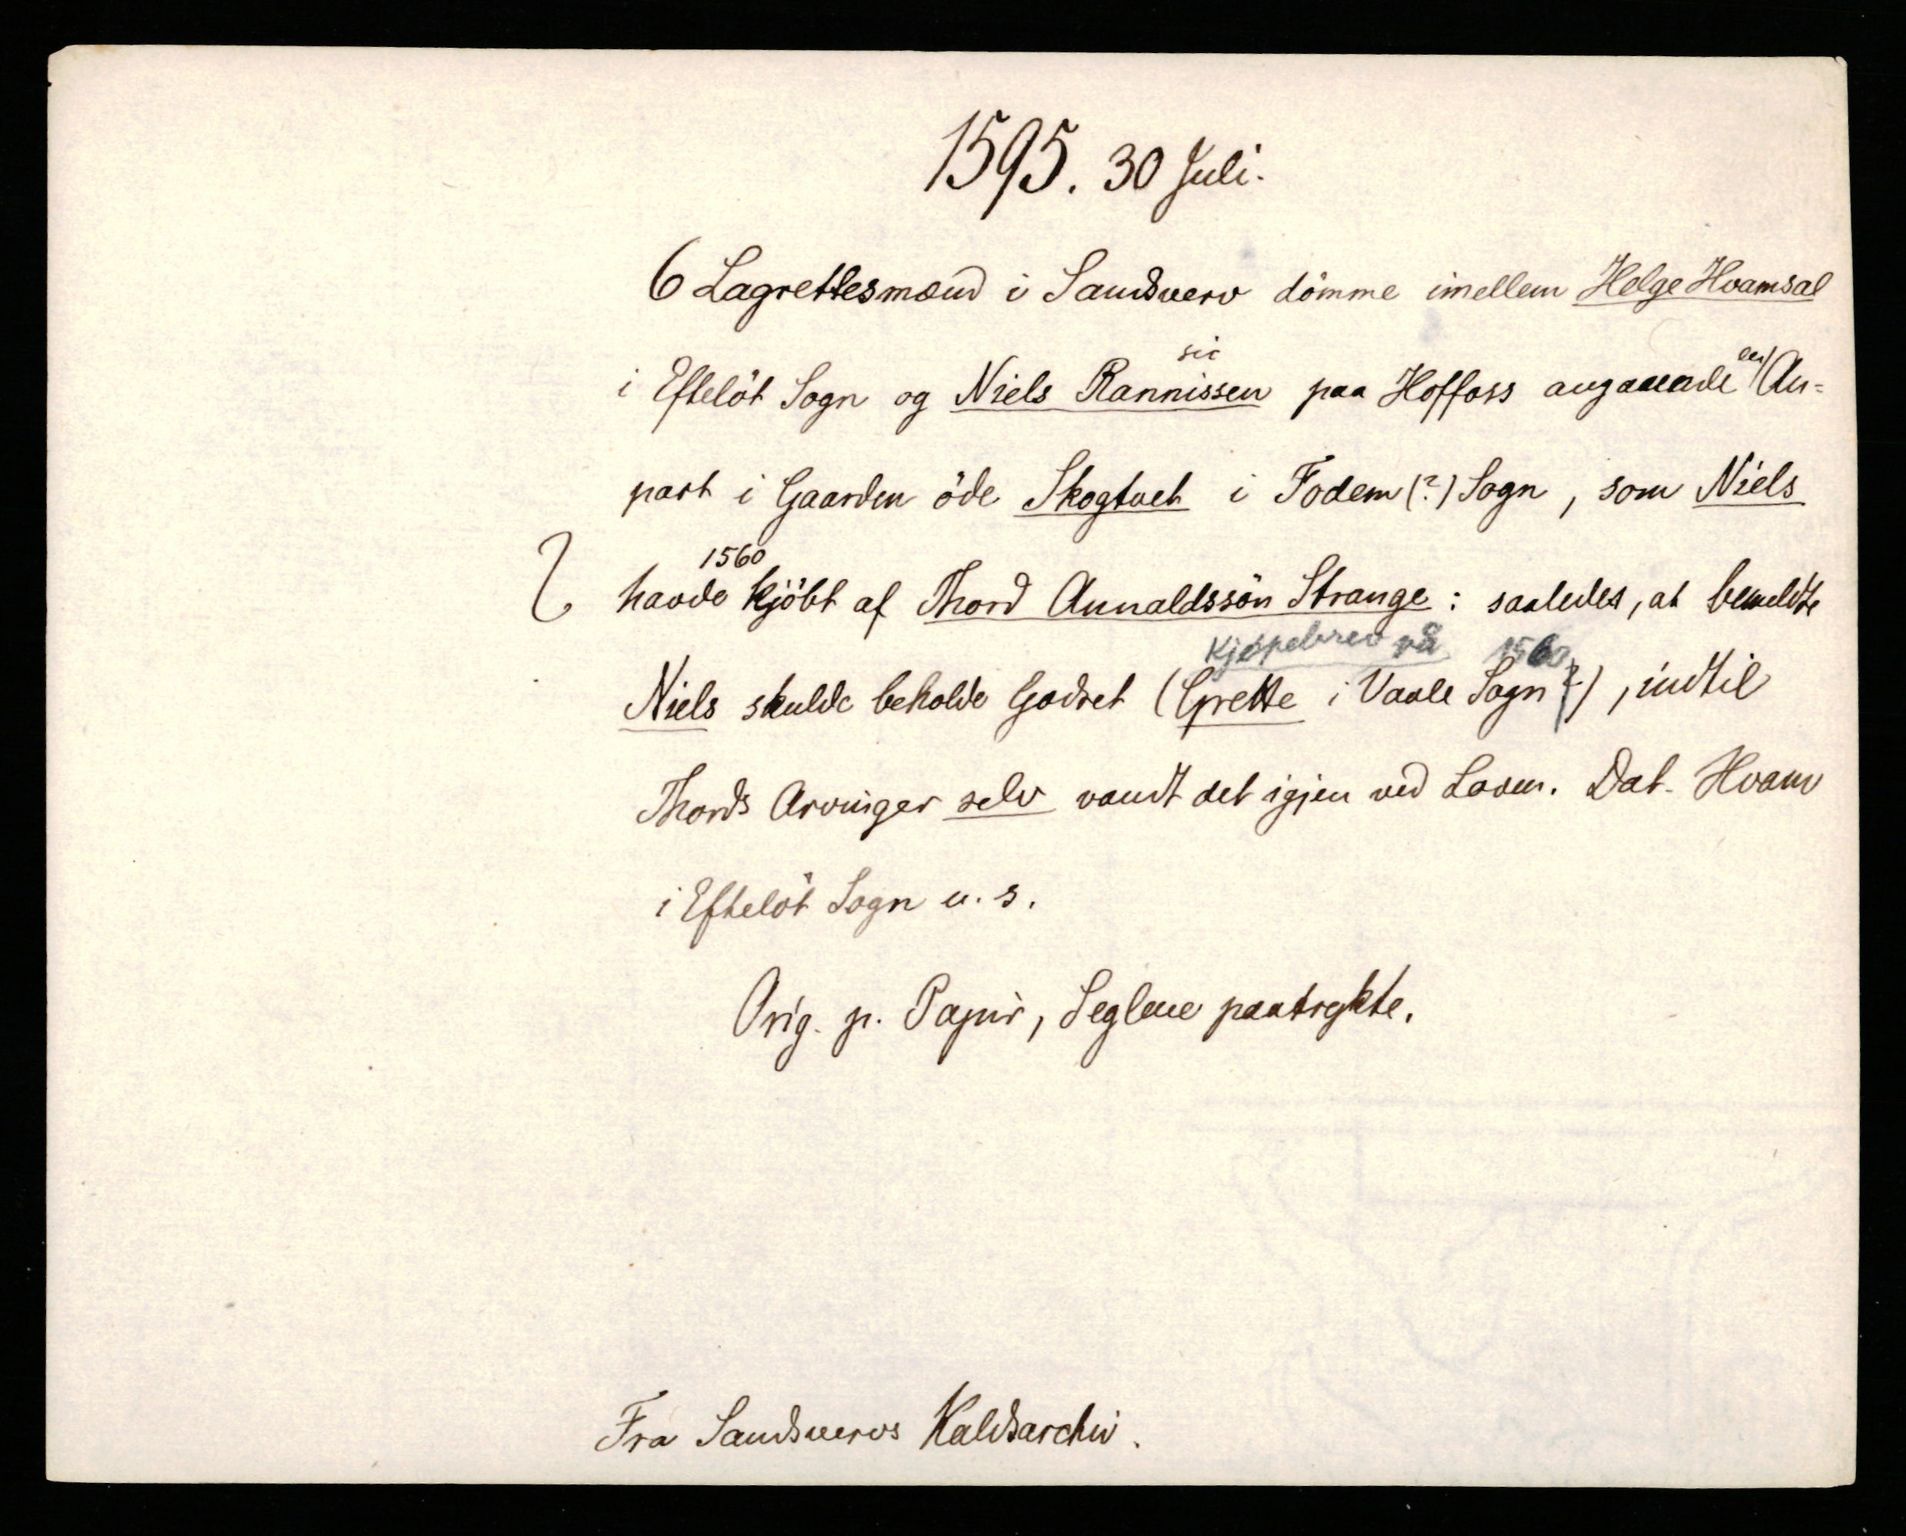 1595. 30 Juli.
6 Lagrettesmænd i Sandsverv dömme imellem Helge Hvamsal
sic
i Eftelöt Sogn og Niels Rannissen paa Hoffoss angaaende en An=
part i Gaarden öde Skogtvet i Fodem (?) Sogn, som Niels
1560
havde kjöbt af Thord Aunaldssön Strange: saaledes, at bemeldte
Kjøpebrev på 1560
Niels skulde beholde Godset (Grette i Vaale Sogn ?), indtil
Thords Arvinger selv vandt det igjen ved Loven. Dat. Hvam
i Eftelöt Sogn u. s.
Orig. p. Papir, Seglene paatrykte.
Fra Sandsvervs Kaldsarchiv.